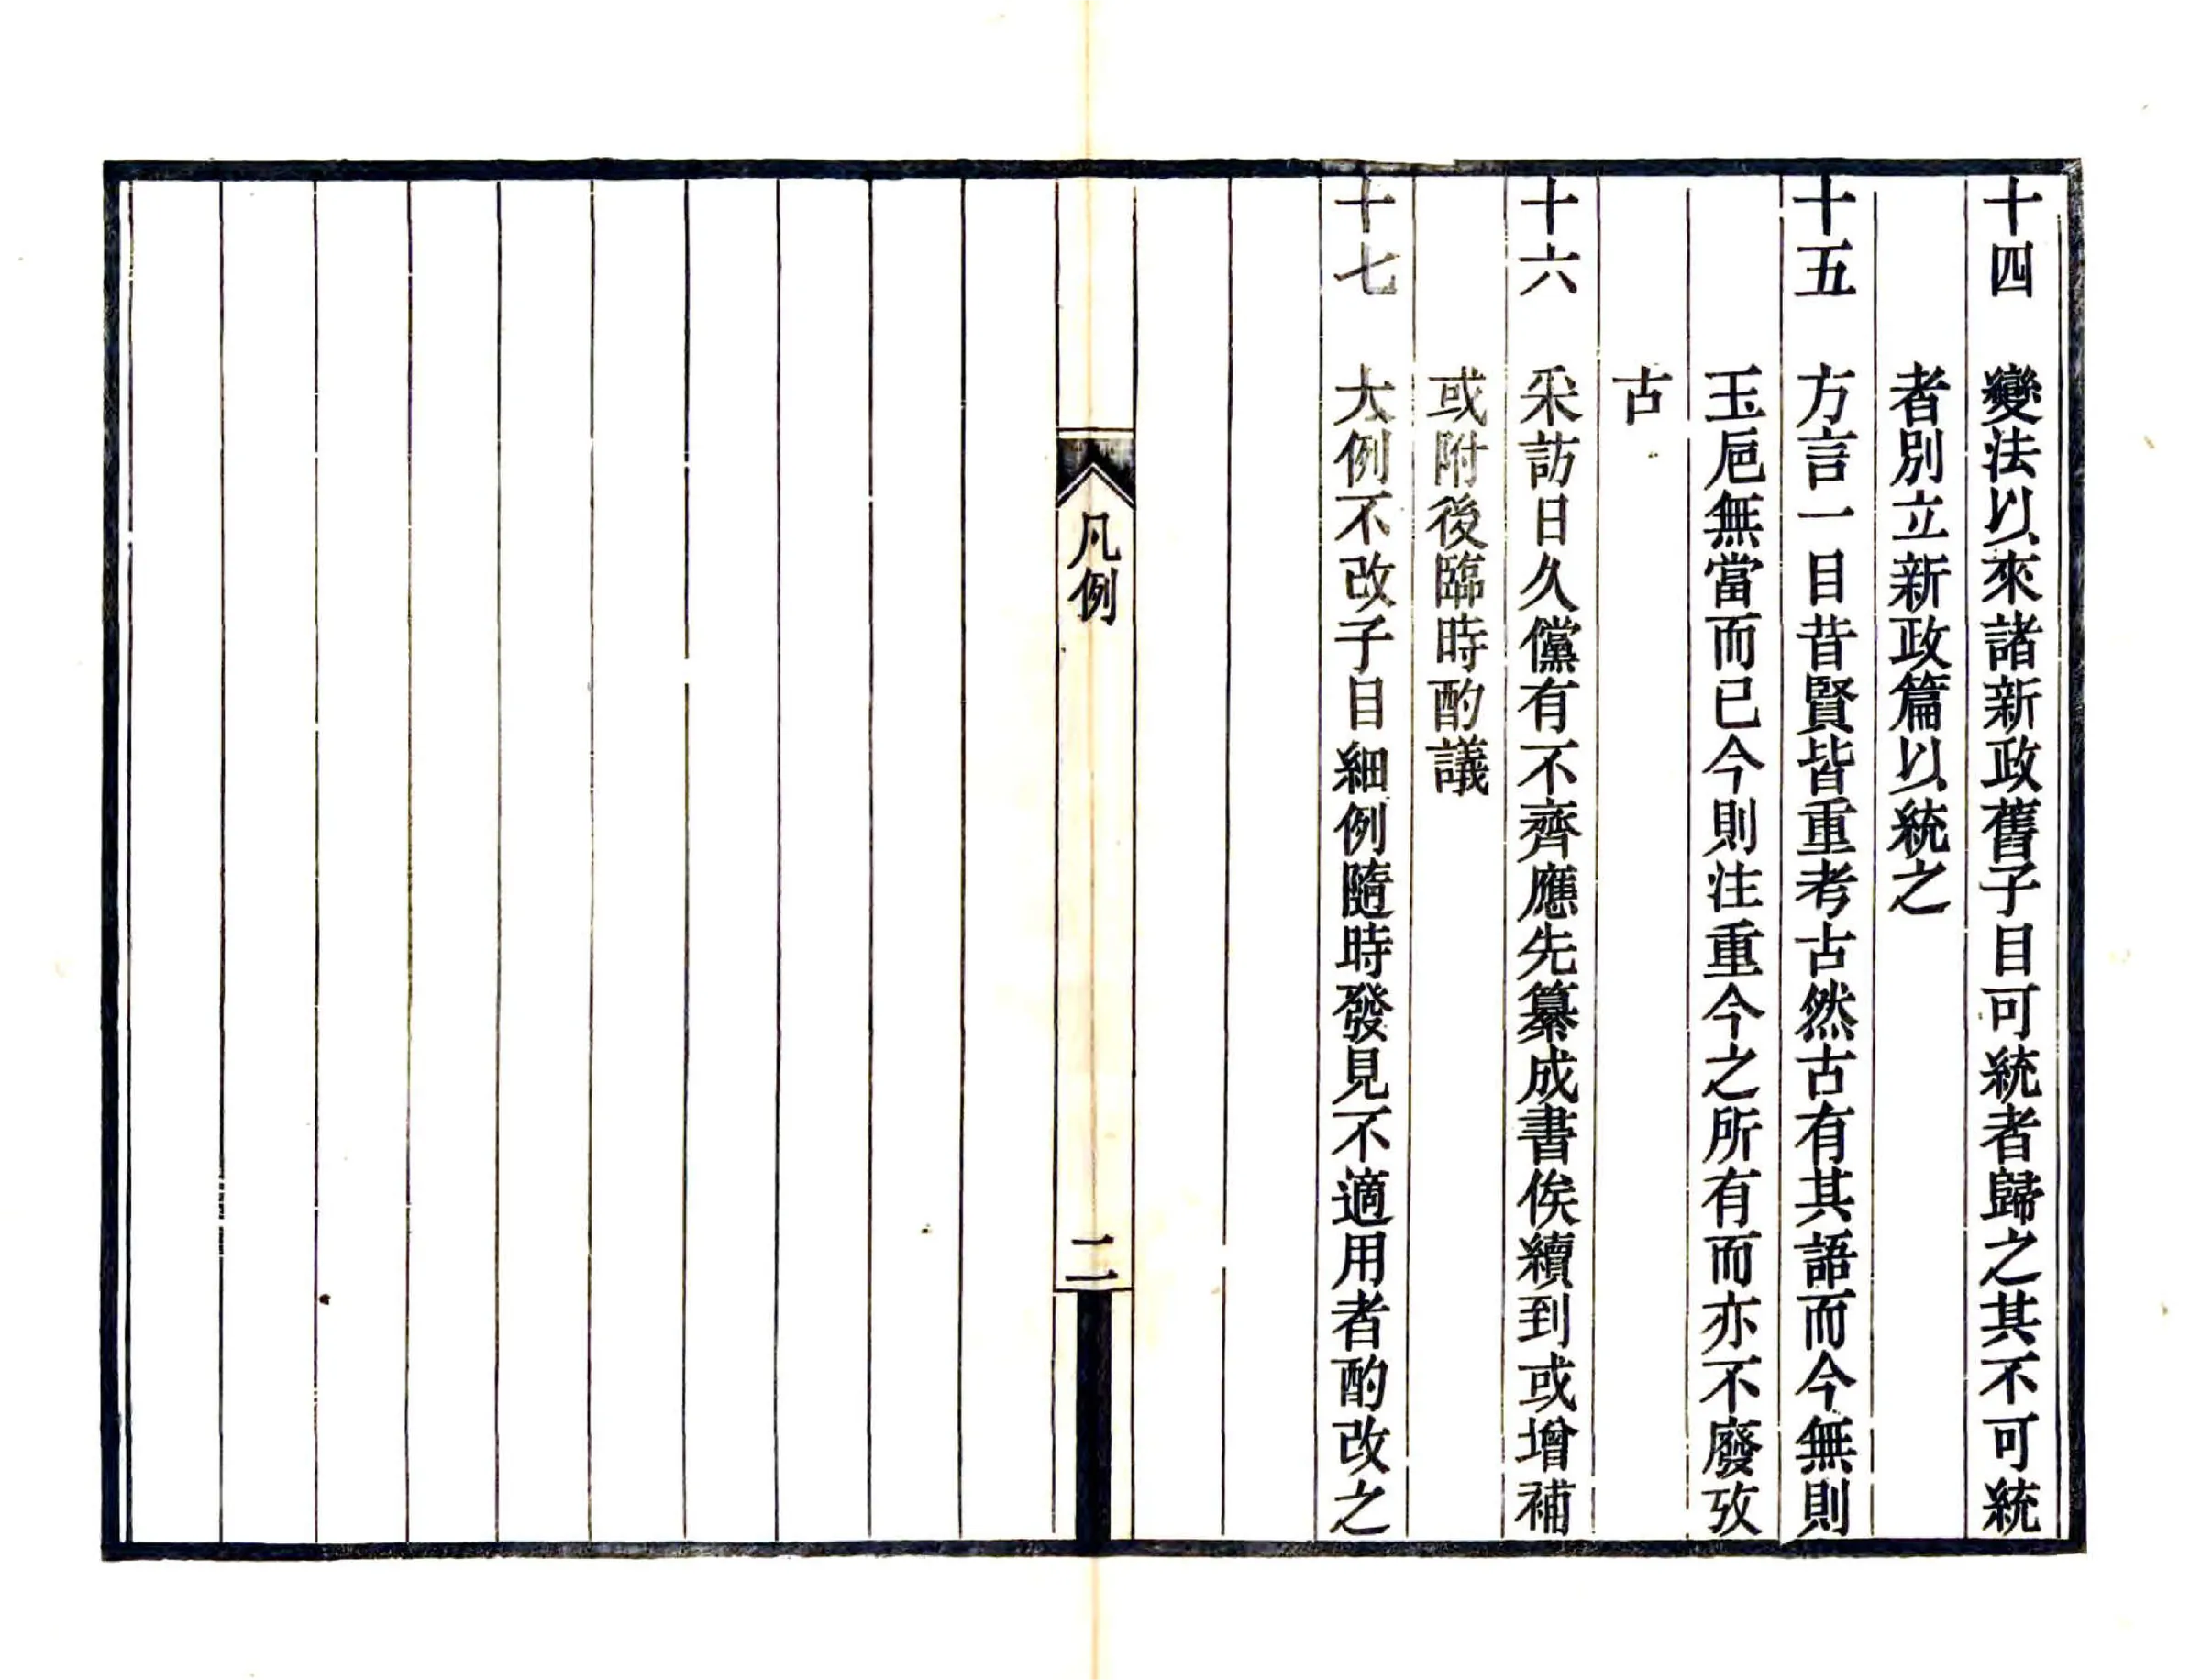 十四　變法以來諸新政舊子目可統者歸之其不可統
者別立新政篇以統之
十五　方言一目昔賢皆重考古然古有其語而今無則
玉巵無當而已今則注重今之所有而亦不廢攷
古
十六　采訪日久儻有不齊應先纂成書俟續到或增補
或附後臨時酌議
十七　大例不改子目細例隨時發見不適用者酌改之
凡例
二